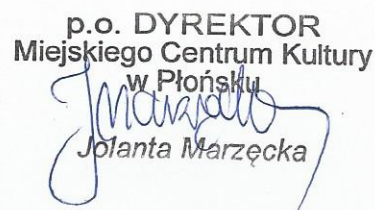 p.o. DYREKTOR
Miejskiego Centrum Kultury
w Płońsku
Jolanta Marzęcka